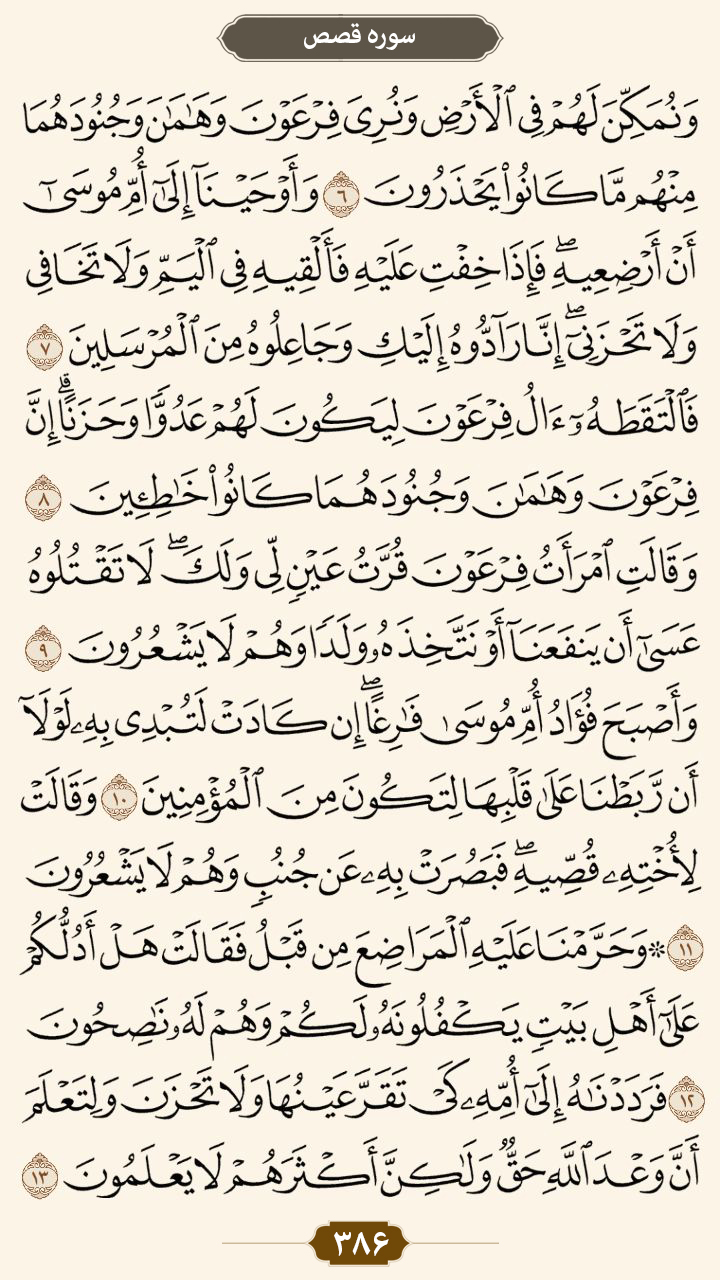 سوره قصص
وَنُمَكِّنَ لَهُمۡ فِي ٱلۡأَرۡضِ وَنُرِيَ فِرۡعَوۡنَ وَهَٰمَٰنَ وَجُنُودَهُمَا
مِنۡهُم مَّا كَانُواْ يَحۡذَرُونَ ٦ وَأَوۡحَيۡنَآ إِلَىٰٓ أُمِّ مُوسَىٰٓ
أَنۡ أَرۡضِعِيهِۖ فَإِذَا خِفۡتِ عَلَيۡهِ فَأَلۡقِيهِ فِي ٱلۡيَمِّ وَلَا تَخَافِي
وَلَا تَحۡزَنِيٓۖ إِنَّا رَآدُّوهُ إِلَيۡكِ وَجَاعِلُوهُ مِنَ ٱلۡمُرۡسَلِينَ ٧
فَٱلۡتَقَطَهُۥٓ ءَالُ فِرۡعَوۡنَ لِيَكُونَ لَهُمۡ عَدُوّٗا وَحَزَنًاۗ إِنَّ
فِرۡعَوۡنَ وَهَٰمَٰنَ وَجُنُودَهُمَا كَانُواْ خَٰطِـِٔينَ ٨
وَقَالَتِ ٱمۡرَأَتُ فِرۡعَوۡنَ قُرَّتُ عَيۡنٖ لِّي وَلَكَۖ لَا تَقۡتُلُوهُ
عَسَىٰٓ أَن يَنفَعَنَآ أَوۡ نَتَّخِذَهُۥ وَلَدٗا وَهُمۡ لَا يَشۡعُرُونَ ٩
وَأَصۡبَحَ فُؤَادُ أُمِّ مُوسَىٰ فَٰرِغًاۖ إِن كَادَتۡ لَتُبۡدِي بِهِۦ لَوۡلَآ
أَن رَّبَطۡنَا عَلَىٰ قَلۡبِهَا لِتَكُونَ مِنَ ٱلۡمُؤۡمِنِينَ ١٠ وَقَالَتۡ
لِأُخۡتِهِۦ قُصِّيهِۖ فَبَصُرَتۡ بِهِۦ عَن جُنُبٖ وَهُمۡ لَا يَشۡعُرُونَ
١١ ۞وَحَرَّمۡنَا عَلَيۡهِ ٱلۡمَرَاضِعَ مِن قَبۡلُ فَقَالَتۡ هَلۡ أَدُلُّكُمۡ
عَلَىٰٓ أَهۡلِ بَيۡتٖ يَكۡفُلُونَهُۥ لَكُمۡ وَهُمۡ لَهُۥ نَٰصِحُونَ
١٢ فَرَدَدۡنَٰهُ إِلَىٰٓ أُمِّهِۦ كَيۡ تَقَرَّ عَيۡنُهَا وَلَا تَحۡزَنَ وَلِتَعۡلَمَ
أَنَّ وَعۡدَ ٱللَّهِ حَقّٞ وَلَٰكِنَّ أَكۡثَرَهُمۡ لَا يَعۡلَمُونَ ١٣
۳۸۶